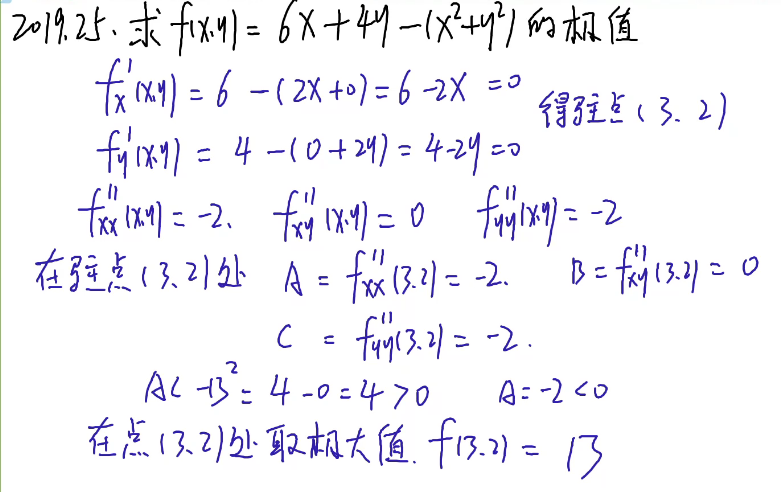 2019.25. 求 f(x.y) = 6x+4y-(x²+y²) 的极值
f'x(x.y) = 6 - (2x+0) = 6-2x = 0
得驻点 (3、2)
f'y(x.y) = 4 - (0+2y) = 4-2y = 0
f''xx(x.y) = -2. f''xy(x.y) = 0 f''yy(x.y) = -2
在驻点 (3、2) 处 A = f''xx(3.2) = -2. B = f''xy(3.2) = 0
C = f''yy(3.2) = -2.
AC-B² = 4-0 = 4 > 0 A = -2 < 0
在点 (3、2) 处 取极大值. f(3.2) = 13